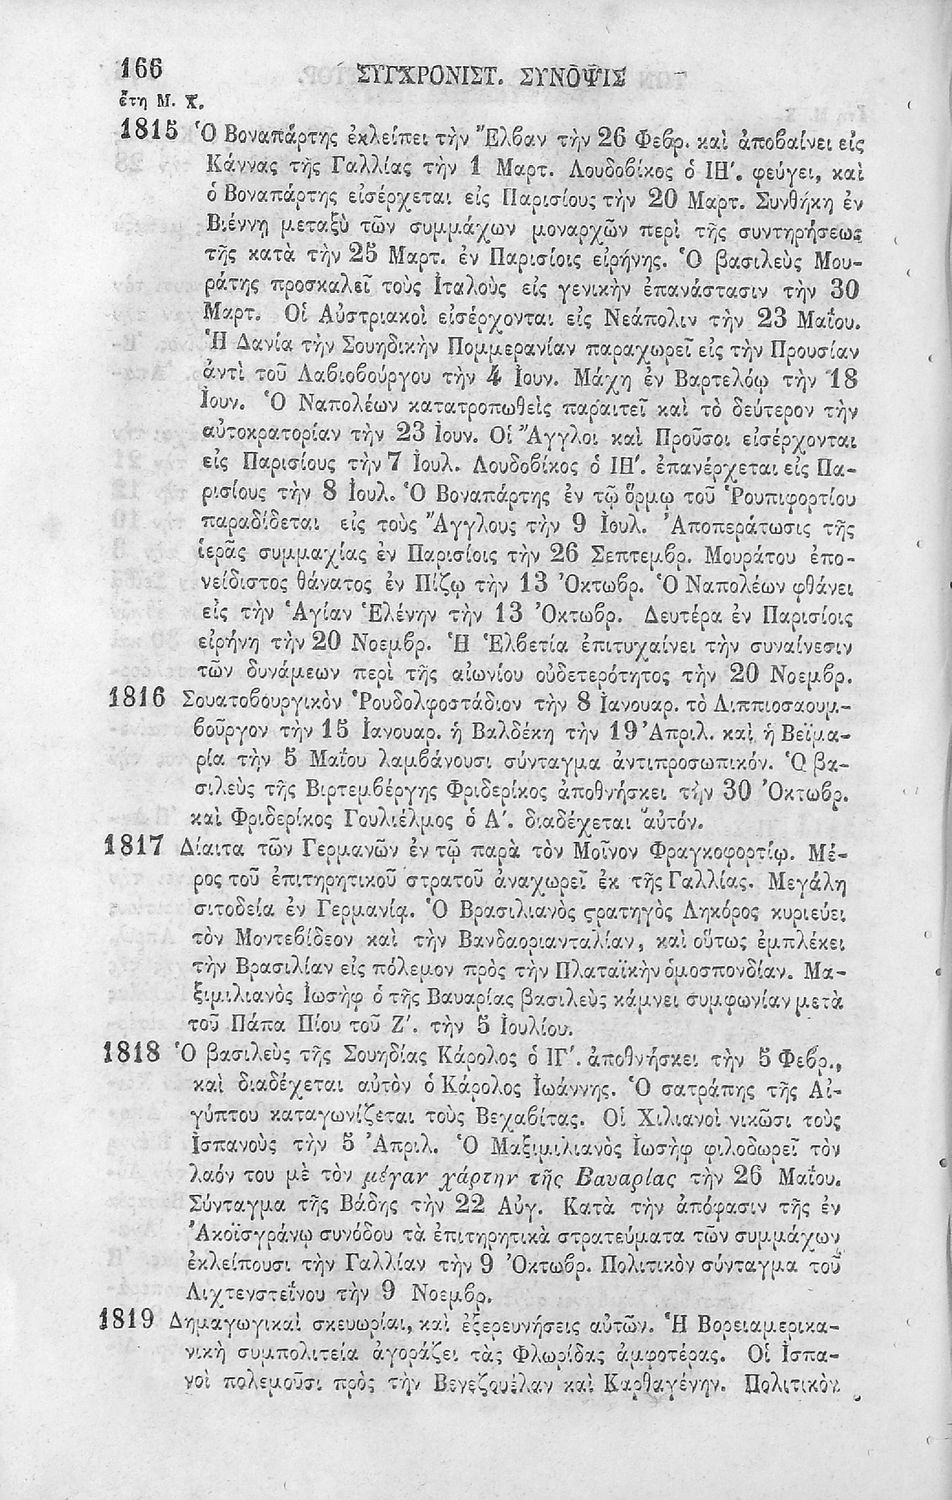 166
ΣΥΓΧΡΟΝΙΣΤ. ΣΥΝΟΨΙΣ
ἔτη Μ. Χ.
1815 Ὁ Βοναπάρτης ἐκλείπει τὴν Ἔλβαν τὴν 26 Φεβρ. καὶ ἀποβαίνει εἰς
Κάννας τῆς Γαλλίας τὴν 1 Μαρτ. Λουδοβίκος ὁ ΙΗ'. φεύγει, καὶ
ὁ Βοναπάρτης εἰσέρχεται εἰς Παρισίους τὴν 20 Μαρτ. Συνθήκη ἐν
Βιέννῃ μεταξὺ τῶν συμμάχων μοναρχῶν περὶ τῆς συντηρήσεως
τῆς κατὰ τὴν 25 Μαρτ. ἐν Παρισίοις εἰρήνης. Ὁ βασιλεὺς Μου-
ράτης προσκαλεῖ τοὺς Ἰταλοὺς εἰς γενικὴν ἐπανάστασιν τὴν 30
Μαρτ. Οἱ Αὐστριακοὶ εἰσέρχονται εἰς Νεάπολιν τὴν 23 Μαΐου.
Ἡ Δανία τὴν Σουηδικὴν Πομμερανίαν παραχωρεῖ εἰς τὴν Προυσίαν
ἀντὶ τοῦ Λαβιοβούργου τὴν 4 Ἰουν. Μάχη ἐν Βαρτελόῳ τὴν 18
Ἰουν. Ὁ Ναπολέων κατατροπωθεὶς παραιτεῖ καὶ τὸ δεύτερον τὴν
αὐτοκρατορίαν τὴν 23 Ἰουν. Οἱ Ἄγγλοι καὶ Προῦσοι εἰσέρχονται
εἰς Παρισίους τὴν 7 Ἰουλ. Λουδοβίκος ὁ ΙΗ'. ἐπανέρχεται εἰς Πα-
ρισίους τὴν 8 Ἰουλ. Ὁ Βοναπάρτης ἐν τῷ ὅρμῳ τοῦ Ῥουπιφορτίου
παραδίδεται εἰς τοὺς Ἄγγλους τὴν 9 Ἰουλ. Ἀποπεράτωσις τῆς
ἱερᾶς συμμαχίας ἐν Παρισίοις τὴν 26 Σεπτεμβρ. Μουράτου ἐπο-
νείδιστος θάνατος ἐν Πίζῳ τὴν 13 Ὀκτωβρ. Ὁ Ναπολέων φθάνει
εἰς τὴν Ἁγίαν Ἑλένην τὴν 13 Ὀκτωβρ. Δευτέρα ἐν Παρισίοις
εἰρήνη τὴν 20 Νοεμβρ. Ἡ Ἑλβετία ἐπιτυχαίνει τὴν συναίνεσιν
τῶν δυνάμεων περὶ τῆς αἰωνίου οὐδετερότητος τὴν 20 Νοεμβρ.
1816 Σουατοβουργικὸν Ῥουδολφοστάδιον τὴν 8 Ἰανουαρ. τὸ Λιππιοσαουμ-
βοῦργον τὴν 15 Ἰανουαρ. ἡ Βαλδέκη τὴν 19 Ἀπριλ. καὶ ἡ Βεϊμα-
ρία τὴν 5 Μαΐου λαμβάνουσι σύνταγμα ἀντιπροσωπικόν. Ὁ βα-
σιλεὺς τῆς Βιρτεμβέργης Φριδερίκος ἀποθνήσκει τὴν 30 Ὀκτωβρ.
καὶ Φριδερίκος Γουλιέλμος ὁ Α'. διαδέχεται αὐτόν.
1817 Δίαιτα τῶν Γερμανῶν ἐν τῷ παρὰ τὸν Μοῖνον Φραγκοφορτίῳ. Μέ-
ρος τοῦ ἐπιτηρητικοῦ στρατοῦ ἀναχωρεῖ ἐκ τῆς Γαλλίας. Μεγάλη
σιτοδεία ἐν Γερμανίᾳ. Ὁ Βρασιλιανὸς ϛρατηγὸς Ληκόρος κυριεύει
τὸν Μοντεβίδεον καὶ τὴν Βανδαοριανταλίαν, καὶ οὕτως ἐμπλέκει
τὴν Βρασιλίαν εἰς πόλεμον πρὸς τὴν Πλαταϊκὴν ὁμοσπονδίαν. Μα-
ξιμιλιανὸς Ἰωσὴφ ὁ τῆς Βαυαρίας βασιλεὺς κάμνει συμφωνίαν μετὰ
τοῦ Πάπα Πίου τοῦ Ζ'. τὴν 5 Ἰουλίου.
1818 Ὁ βασιλεὺς τῆς Σουηδίας Κάρολος ὁ ΙΓ'. ἀποθνήσκει τὴν 5 Φεβρ.,
καὶ διαδέχεται αὐτὸν ὁ Κάρολος Ἰωάννης. Ὁ σατράπης τῆς Αἰ-
γύπτου καταγωνίζεται τοὺς Βεχαβίτας. Οἱ Χιλιανοὶ νικῶσι τοὺς
Ἱσπανοὺς τὴν 5 Ἀπριλ. Ὁ Μαξιμιλιανὸς Ἰωσὴφ φιλοδωρεῖ τὸν
λαόν του μὲ τὸν μέγαν χάρτην τῆς Βαυαρίας τὴν 26 Μαΐου.
Σύνταγμα τῆς Βάδης τὴν 22 Αὐγ. Κατὰ τὴν ἀπόφασιν τῆς ἐν
Ἀκοϊσγράνῳ συνόδου τὰ ἐπιτηρητικὰ στρατεύματα τῶν συμμάχων
ἐκλείπουσι τὴν Γαλλίαν τὴν 9 Ὀκτωβρ. Πολιτικὸν σύνταγμα τοῦ
Λιχτενστεΐνου τὴν 9 Νοεμβρ.
1819 Δημαγωγικαὶ σκευωρίαι, καὶ ἐξερευνήσεις αὐτῶν. Ἡ Βορειαμερικα-
νικὴ συμπολιτεία ἀγοράζει τὰς Φλωρίδας ἀμφοτέρας. Οἱ Ἱσπα-
νοὶ πολεμοῦσι πρὸς τὴν Βενεζουέλαν καὶ Καρθαγένην. Πολιτικὸν